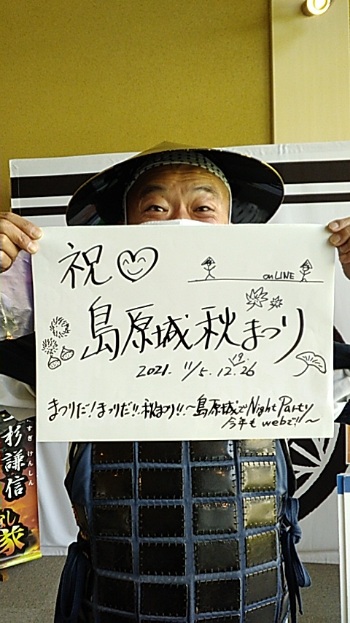 祝
onLINE
島原城秋まつり
2021. 11/5. 12. 26
まつりだ!まつりだ!!秋まつり!!~島原城でNight Party
今年もwebで!!~
杉謙信
すぎ けんしん